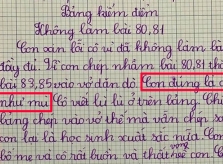 Bảng kiểm điểm
Không làm bài 80,81
Con xin lỗi cô vì đã không làm bài
đầy đủ. Tí con chép nhầm bài 80,81 th
bài 83,85 vào vở dặn dò. Con đúng là
như mù. Cô viết lù lù ở trên bảng. Chi
bảng chép vào vở thế mà vẫn chép s
con lại là học sinh xuất sắc nữa. Con
bố mẹ và cô hải buồn và thất vọng